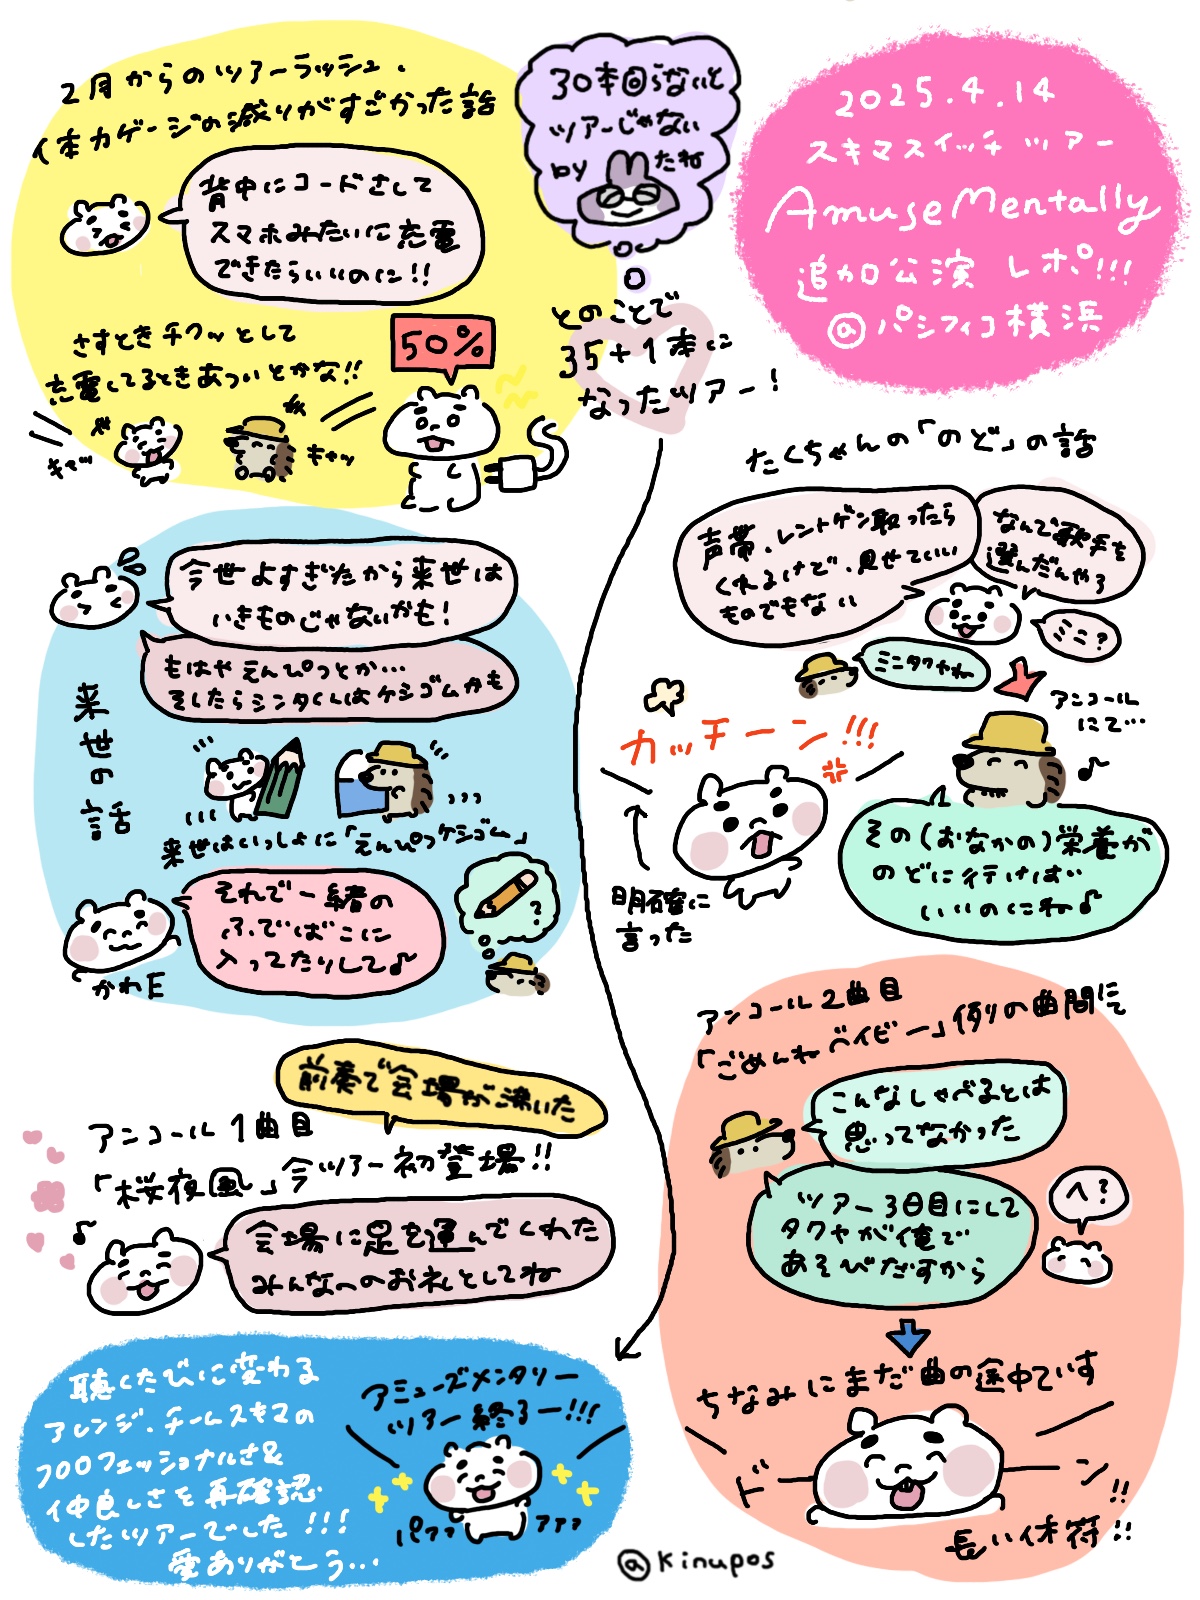 2025.4.14
スキマスイッチ ツアー
AmuseMentally
追加公演 レポ!!!
@パシフィコ横浜
30本回らないと
ツアーじゃない
by たね
とのことで
35+1本に
なったツアー!
2月からのツアーラッシュ、
体力ゲージの減りがすごかった話
背中にコードさして
スマホみたいに充電
できたらいいのに!!
さすときチクッとして
充電してるときあついとかな!!
50%
キャッ
キャッ
たくちゃんの「のど」の話
声帯、レントゲン取ったら
くれるけど、見せていい
ものでもない
なんで歌手を
選んだんやろ
ミニ?
ミニタクヤね
アンコール
にて…
その(おなかの)栄養が
のどに行けば
いいのにね♪
カッチーン!!!
明確に
言った
来世の話
今世よすぎたから来世は
いきものじゃないかも!
もはやえんぴつとか…
そしたらシンタくんはケシゴムかも
来世はいっしょに「えんぴつケシゴム」
それで一緒の
ふでばこに
入ってたりして♪
?
かわE
前奏で会場が沸いた
アンコール1曲目
「桜夜風」今ツアー初登場!!
会場に足を運んでくれた
みんなへのお礼としてね
アンコール2曲目
「ごめんねベイビー」例の曲間にて
こんなしゃべるとは
思ってなかった
ツアー3日目にして
タクヤが俺で
あそびだすから
へ?
ちなみにまだ曲の途中です
ドーーン!!
長い休符!!
聴くたびに変わる
アレンジ、チームスキマの
プロフェッショナルさ&
仲良しさを再確認
したツアーでした!!!
愛ありがとう…
アミューズメンタリー
ツアー終るー!!!
パァァ
ァァァ
@kinupos